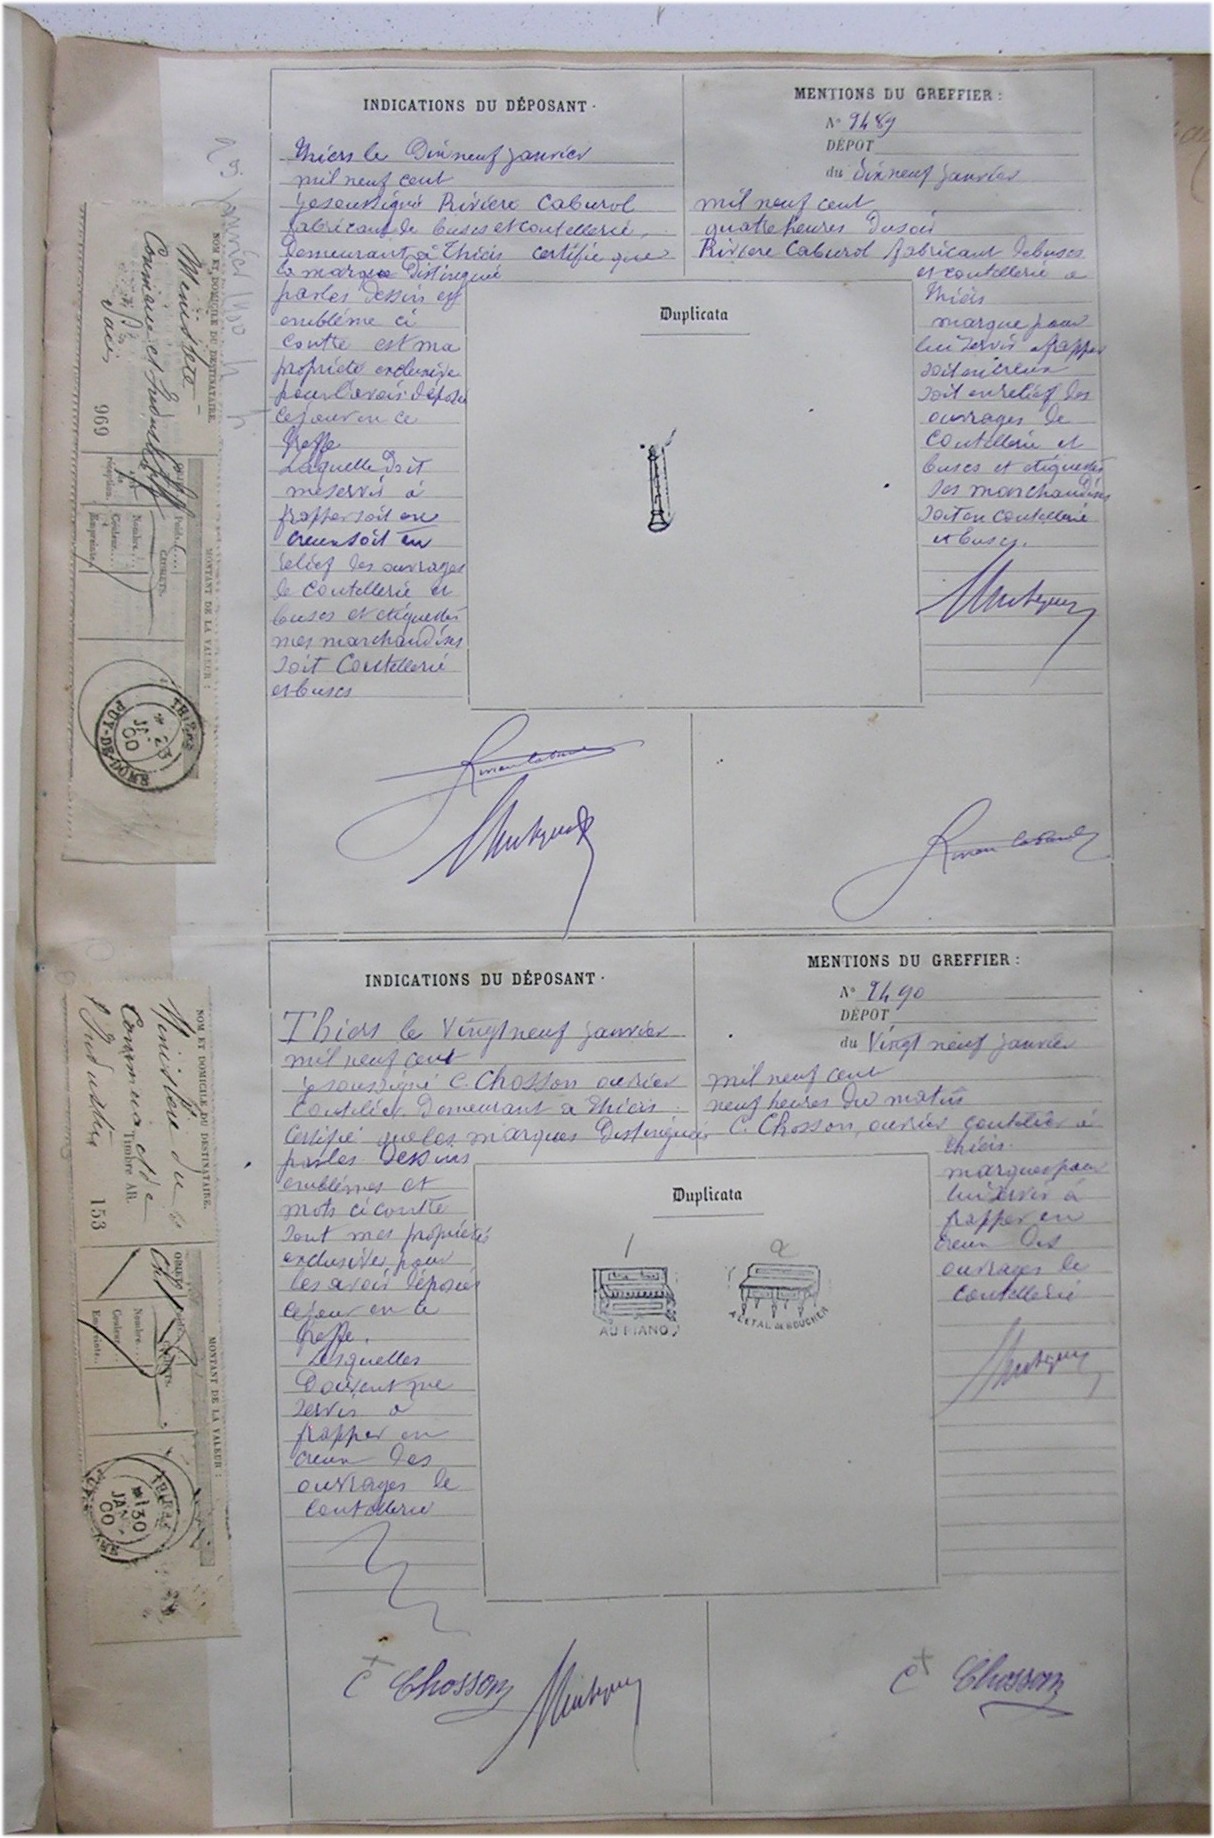 INDICATIONS DU DÉPOSANT.
Thiers le Dixneuf janvier
mil neuf cent
jesoussigné Riviere Caburol
fabricant de buscs et coutellerie
Demeurant à Thiers certifie que
la marque Distinguée
par les dessin et
emblème ci
contre est ma
propriété exclusive
pour l'avoir déposé
ce jour en ce
Greffe
Laquelle doit
me servir à
frapper soit en
creux soit en
relief des ouvrages
de Coutellerie et
buscs et étiquettes
mes marchandises
soit Coutellerie
et buscs
MENTIONS DU GREFFIER :
N° 9489
DÉPOT
du Dixneuf janvier
mil neuf cent
quatre heures Du soir
Riviere Caburol fabricant de buscs
et coutellerie a
Thiers
marque pour
lui servir a frapper
soit en creux
soit en relief des
ouvrages de
Coutellerie et
buscs et étiquettes
ses marchandises
soit en coutellerie
et buscs.
Duplicata
NOM ET DOMICILE DU DESTINATAIRE.
Ministère
Commerce et Industrie
Paris
969
MONTANT DE LA VALEUR :
THIERS
23
JANV
00
PUY-DE-DOME
INDICATIONS DU DÉPOSANT.
Thiers le Vingt neuf janvier
mil neuf cent
je soussigné C. Chosson ouvrier
Coutelier Demeurant a Thiers
Certifie que les marques Distinguées
par les Dessins
emblèmes et
mots ci contre
sont mes propriétés
exclusives pour
les avoir déposées
ce jour en ce
Greffe.
Lesquelles
Doivent me
servir a
frapper en
creux des
ouvrages de
Coutellerie
MENTIONS DU GREFFIER :
N° 9490
DÉPOT
du Vingt neuf janvier
mil neuf cent
neuf heures du matin
C. Chosson, ouvrier coutelier à
Thiers.
marques pour
lui servir à
frapper en
creux des
ouvrages de
Coutellerie
Duplicata
1
2
AU PIANO
A L'ETAL de BOUCHER
C Chosson
C Chosson
NOM ET DOMICILE DU DESTINATAIRE.
Ministère du
Commerce et de
l'Industrie
Timbre AR.
153
MONTANT DE LA VALEUR :
THIERS
30
JANV
00